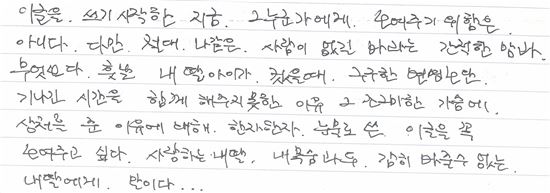 이글을. 쓰기 시작한 지금. 그누군가에게. 보여주기 위함은.
아니다. 다만. 절대. 나같은. 사람이 없길 바라는 간절한 맘과.
무엇보다. 훗날 내 딸아이가. 컸을때. 구구한 변명보단.
기나긴 시간을 함께 해주지못한 이유 그 조그마한 가슴에.
상처를 준 이유에 대해. 한자한자. 눈물로 쓴 이글을 꼭
보여주고 싶다. 사랑하는 내딸. 내목숨과도. 감히 바꿀수 있는.
내딸에게. 만이다...